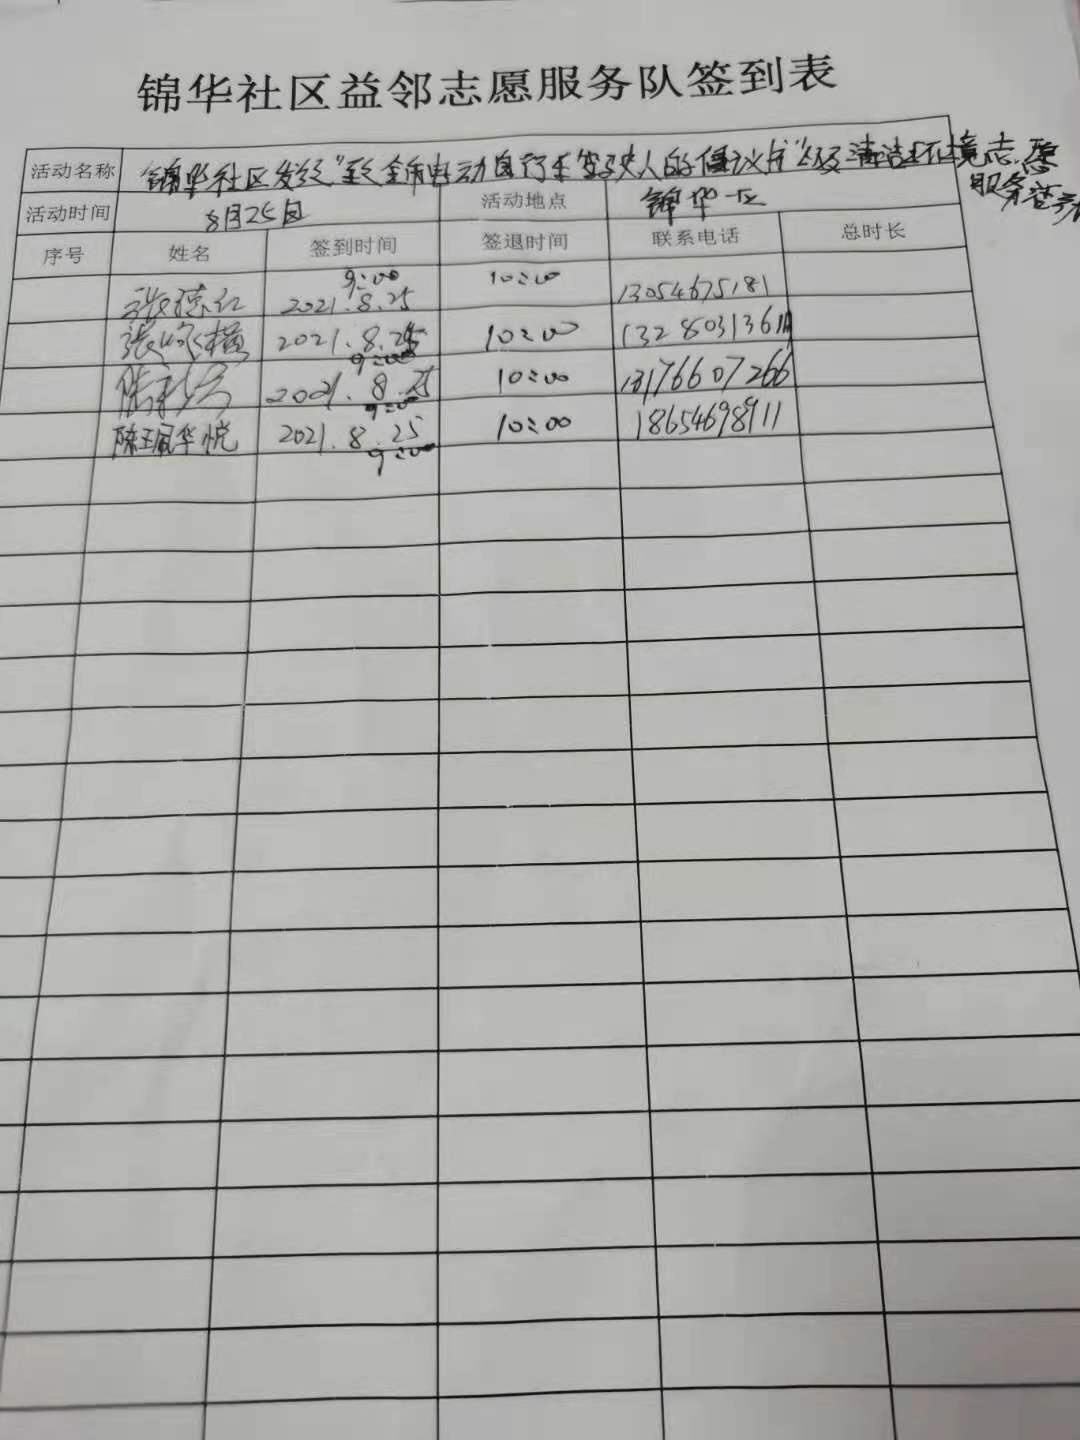 锦华社区益邻志愿服务队签到表
活动名称 锦华社区发给"致全市电动自行车驾驶人的倡议书"以及清洁环境志愿
服务活动
活动时间 8月25日 活动地点 锦华一区
序号 姓名 签到时间 签退时间 联系电话 总时长
9:00
张 红 2021.8.25 10:00 13054675181
张 2021.8.25 10:00
9:00
陈 2021.8.25 10:00 13176607266
9:00
陈 华悦 2021.8.25 10:00 18654698911
9:00